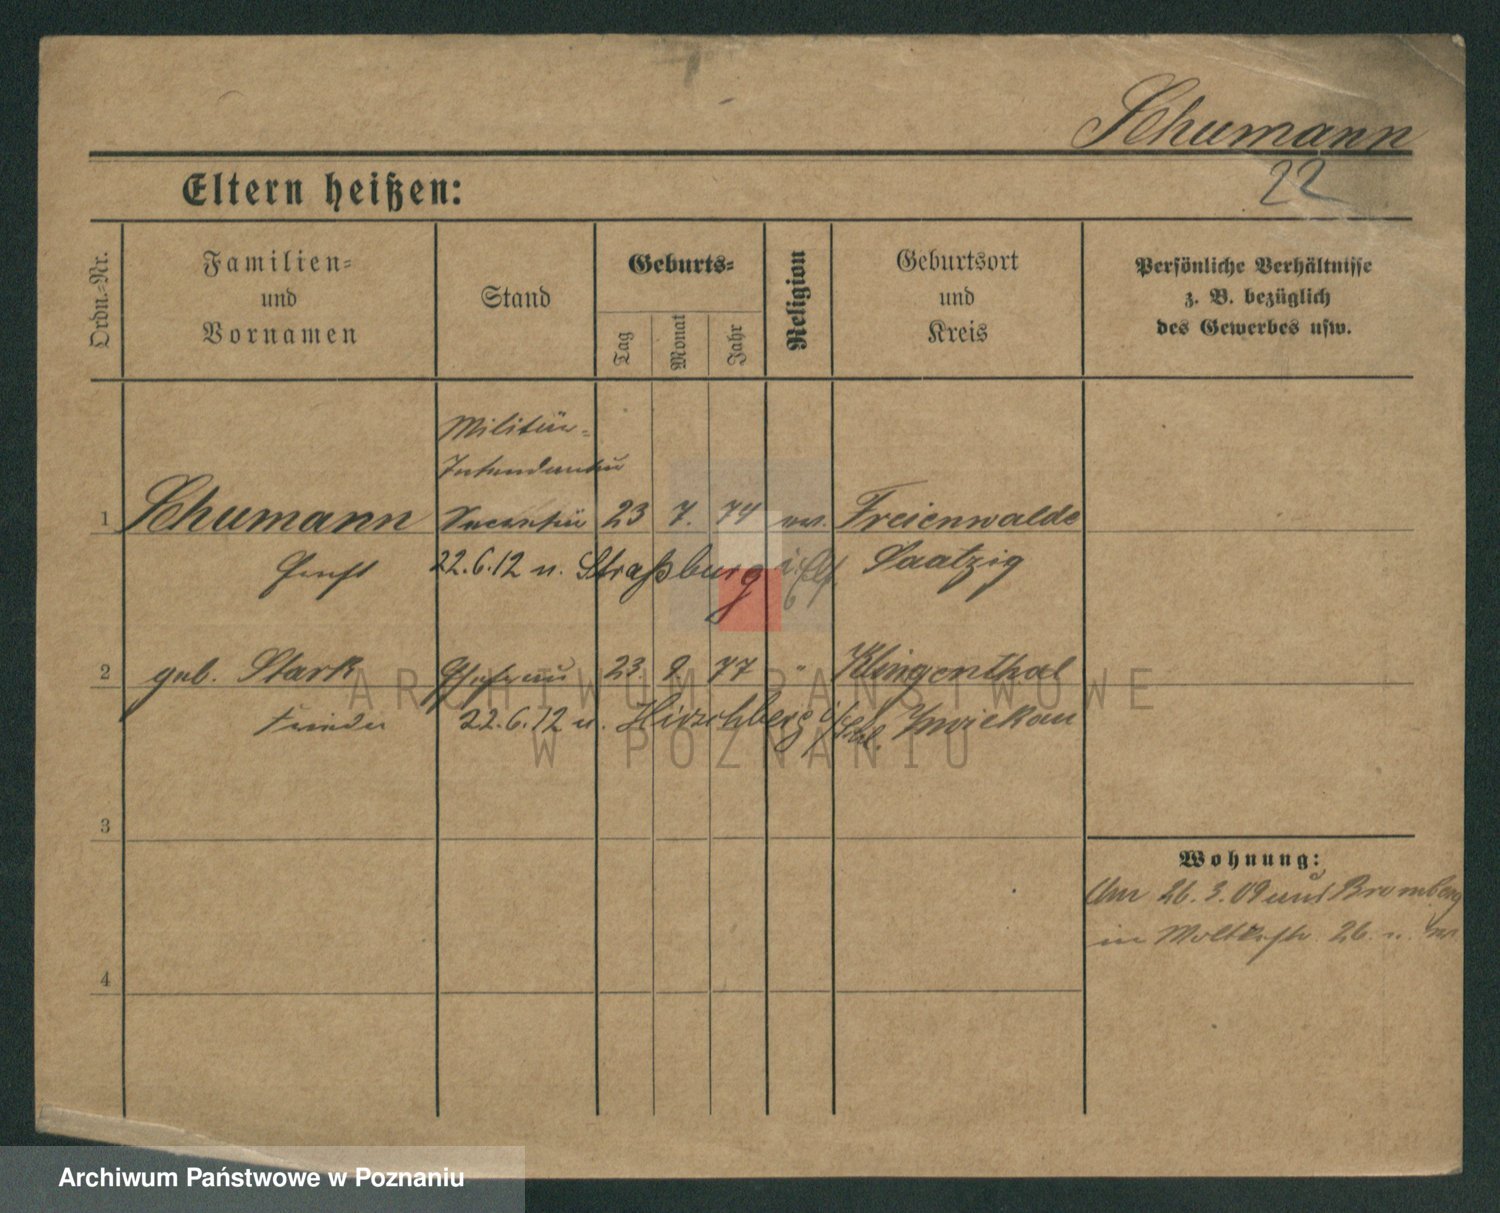 Schumann
22
Eltern heißen:
Ordn.-Nr.
Familien-
und
Vornamen
Stand
Geburts-
Tag
Monat
Jahr
Religion
Geburtsort
und
Kreis
Persönliche Verhältnisse
z. B. bezüglich
des Gewerbes usw.
Militär-
Intendantur
1 Schumann Secretär 23 7. 74 ev. Freienwalde
Ernst 22.6.12 n. Straßburg i. Els Saatzig
2 geb. Stark Ehefrau 23. 9. 77 " Klingenthal
22.6.12 n. Hirschberg i/ Schl. Zwickau
3
4
Wohnung:
Am 26.3.09 aus Bromberg
in Moltkestr. 26.
ARCHIWUM PAŃSTWOWE
W POZNANIU
Archiwum Państwowe w Poznaniu